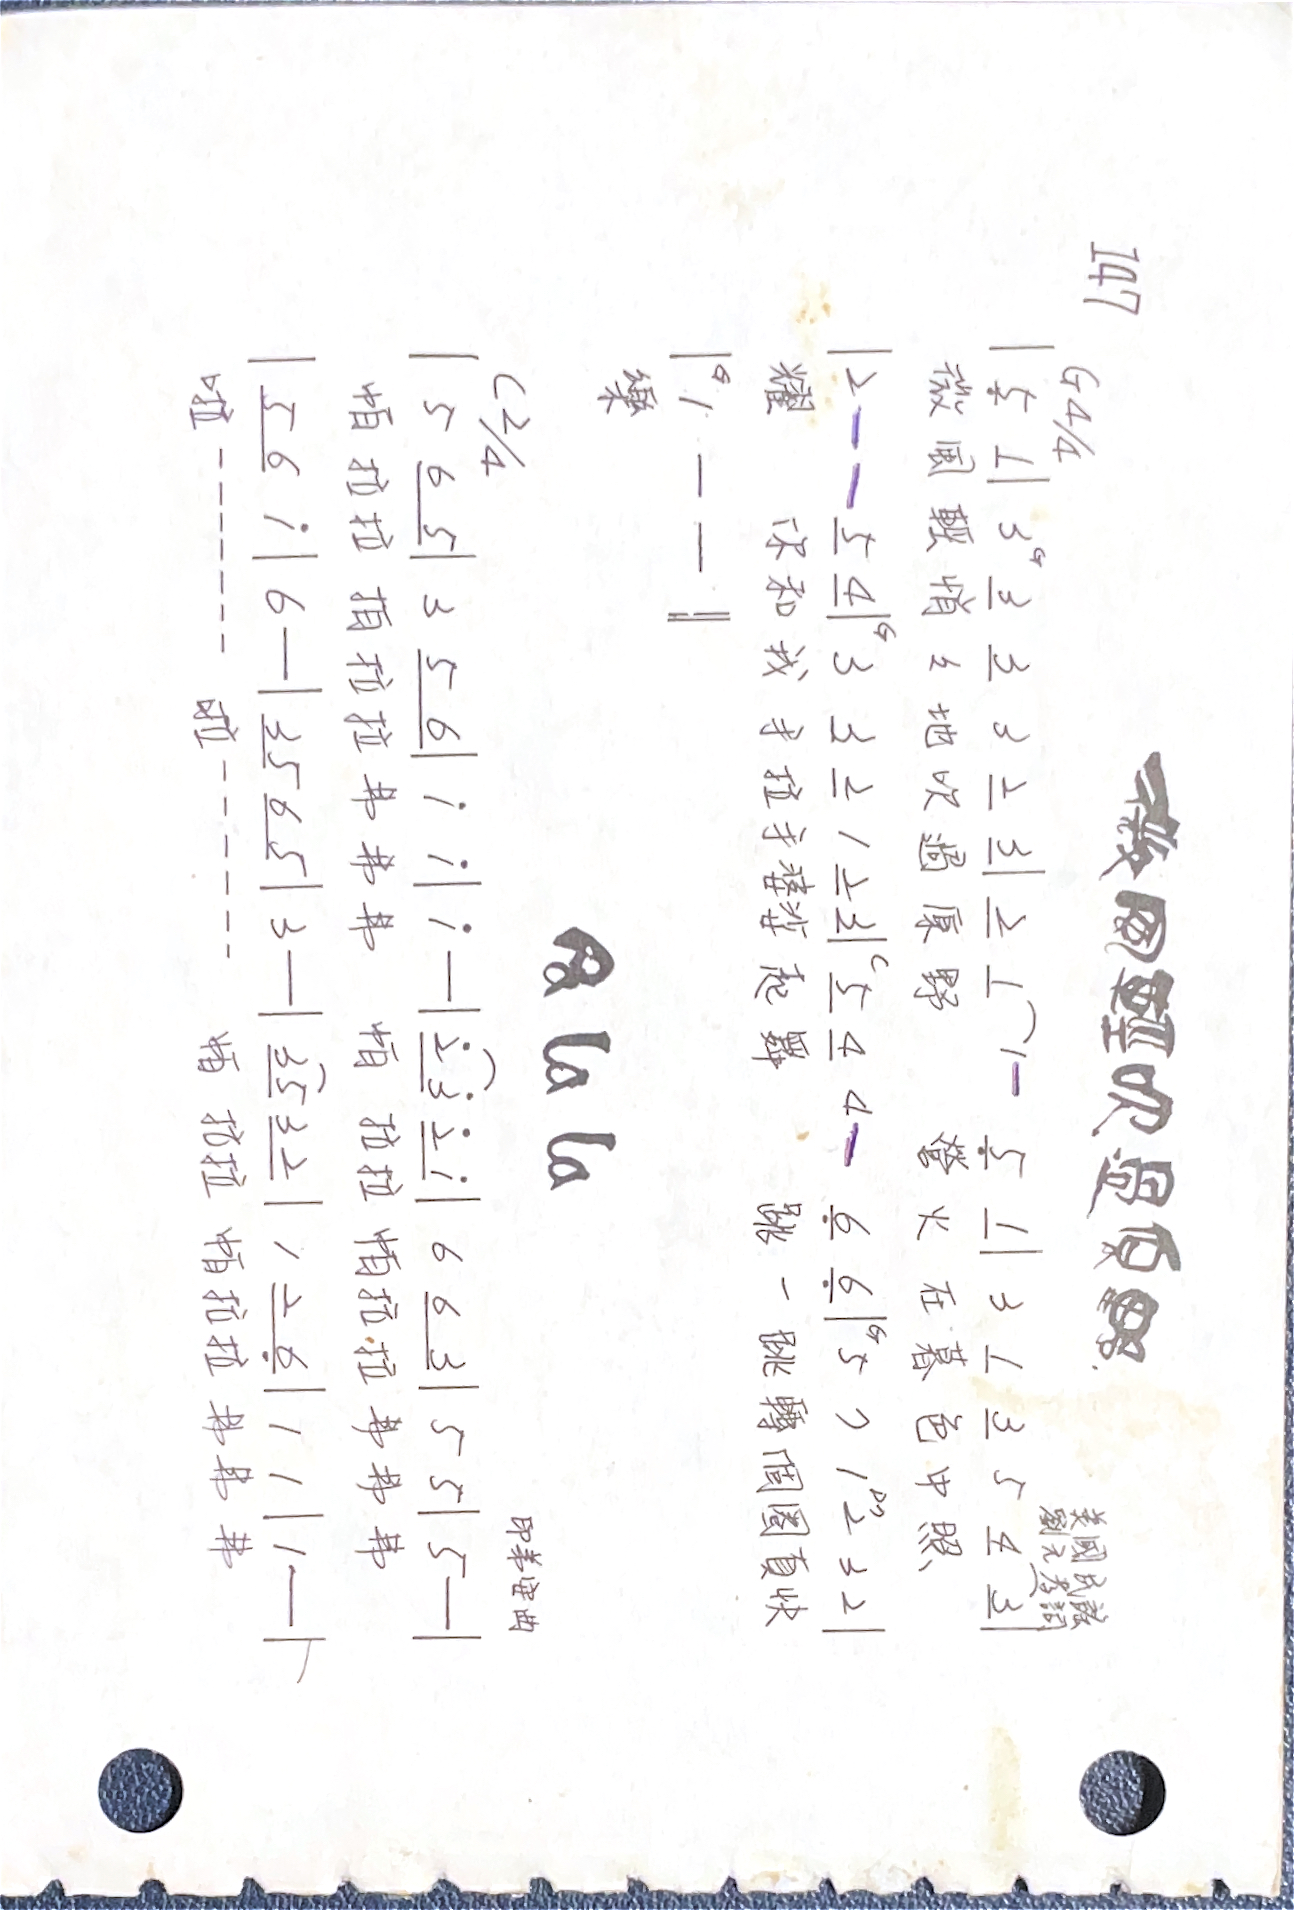 微風輕吹過原野
147
美國民謠
G4/4
劉元孝詞
| 5̣ 1 | 3 G 3 3 3 2 3 | 2 1⌒1 — 5̣ 1 | 3 1 3 5 4⌒3 |
微風輕悄々地吹過原野 營火在暮色中照
| 2 — — 5 4 | G 3 3 2 1 2 3 | C 5 4 4 — 6̣ 6̣ | G 5 7 1 D7 2 3 2 |
耀 你和我手拉手婆娑起舞 跳一跳轉個圈真快
| G 1 — — ‖
樂
Pa La La
印第安曲
C2/4
| 5 6 5 | 3 5 6 | i i | i — | 2̇ 3̇ 2̇ i | 6 6 3 | 5 5 | 5 — |
帕拉拉 拍拉拉弗弗弗 帕拉拉帕拉拉弗弗弗
| 5 6 i | 6 — | 3 5 6 5 | 3 — | 3 5 3 2 | 1 2 6̣ | 1 1 | 1 — |
啦 - - - - - - - 啦 - - - - - - 帕拉拉帕拉拉弗弗弗